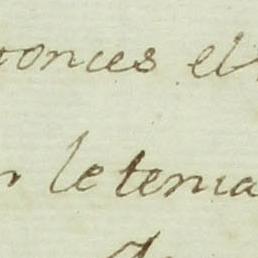 tonces el
r letenia